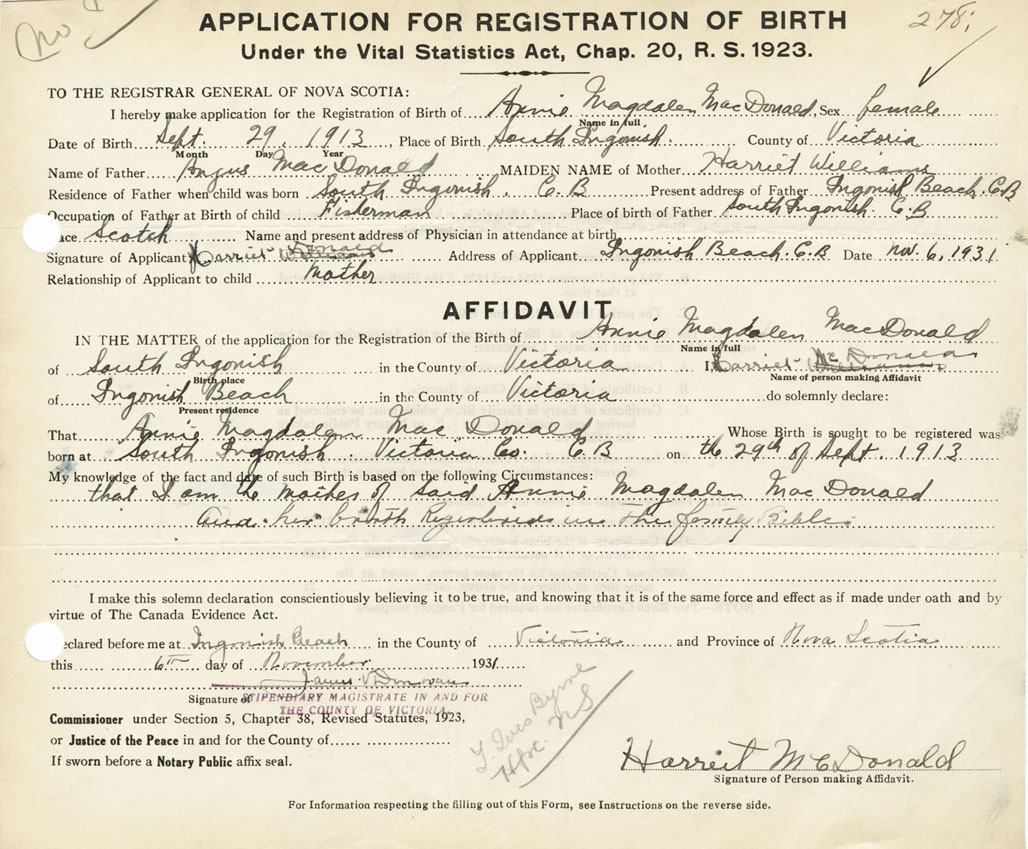 No
APPLICATION FOR REGISTRATION OF BIRTH
278
Under the Vital Statistics Act, Chap. 20, R. S. 1923.
TO THE REGISTRAR GENERAL OF NOVA SCOTIA:
I hereby make application for the Registration of Birth of Annie Magdalen MacDonald Sex female
Name in full
Date of Birth Sept. 29, 1913, Place of Birth South Ingonish County of Victoria
Month Day Year
Name of Father Angus MacDonald MAIDEN NAME of Mother Harriet Williams
Residence of Father when child was born South Ingonish. C.B Present address of Father Ingonish Beach. C.B
Occupation of Father at Birth of child Fisherman Place of birth of Father South Ingonish. C.B
ace Scotch Name and present address of Physician in attendance at birth
Signature of Applicant Harriet Williams Donald Address of Applicant Ingonish Beach. C.B Date Nov. 6, 1931
Relationship of Applicant to child Mother
AFFIDAVIT
IN THE MATTER of the application for the Registration of the Birth of Annie Magdalen MacDonald
Name in full
of South Ingonish in the County of Victoria I, Harriet Williams McDonald
Birth place Name of person making Affidavit
of Ingonish Beach in the County of Victoria do solemnly declare:
Present residence
That Annie Magdalen MacDonald Whose Birth is sought to be registered was
born at South Ingonish. Victoria Co. C.B on the 29th of Sept. 1913
My knowledge of the fact and date of such Birth is based on the following Circumstances:
that I am the mother of said Annie Magdalen MacDonald
and her birth in the family Bible
I make this solemn declaration conscientiously believing it to be true, and knowing that it is of the same force and effect as if made under oath and by
virtue of The Canada Evidence Act.
eclared before me at Ingonish Beach in the County of Victoria and Province of Nova Scotia
this 6th day of November 1931
James V Donovan
Signature of STIPENDIARY MAGISTRATE IN AND FOR
THE COUNTY OF VICTORIA
Commissioner under Section 5, Chapter 38, Revised Statutes, 1923,
or Justice of the Peace in and for the County of
If sworn before a Notary Public affix seal.
Byrne
N.S
Harriet McDonald
Signature of Person making Affidavit.
For Information respecting the filling out of this Form, see Instructions on the reverse side.